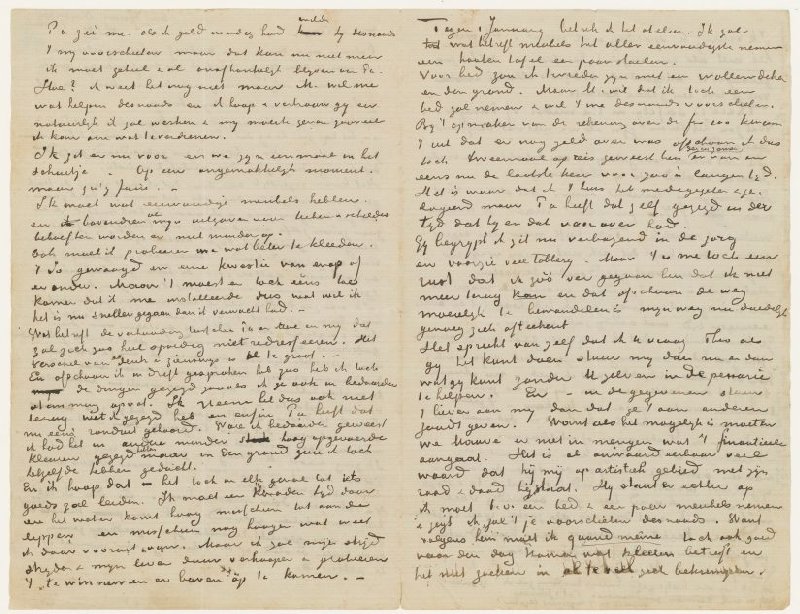 Pa zei me als ik geld noodig had zou hij desnoods
't my voorschieten maar dat kan nu niet meer
ik moet geheel & al onafhankelijk bezien van Pa.
Hoe? ik weet het nog niet maar M. wil me
wat helpen desnoods en ik hoop & vertrouw gy en
natuurlijk ik zal werken & my moeite geven zooveel
ik kan om wat te verdienen.
Ik zit er nu voor en we zyn eenmaal in het
schuitje. Op een ongemakkelijk moment.
maar que faire. –
Ik moet wat eenvoudige meubels hebben.
en bovendien mijn uitgaven voor teeken & schilder
behoeften worden er niet minder op.
Ook moet ik probeeren me wat beter te kleeden.
't is gewaagd en eene kwestie van erop of
eronder. Maar 't moest er toch eens toe
komen dat ik me installeerde dus wat wil ik
het is nu sneller gegaan dan ik verwacht had. –
Wat betreft de verhouding tusschen Pa en Moe en my dat
zal zich zoo heel spoedig niet redresseeren. Het
verschil van denk & zienswijs is te groot
En ofschoon ik in drift gesproken heb zoo heb ik toch
de dingen gezegd zooals ik ze ook in bedaarder
stemming opvat. Ik neem het dus ook niet
terug wat ik gezegd heb en enfin Pa heeft dat
nu eens ronduit gehoord. Ware ik bedaarder geweest
ik had het in andere minder hoog opgevoerde
kleuren gezegd maar in den grond zou ik toch
hetzelfde hebben gedacht.
En ik hoop dat het toch in elk geval tot iets
goeds zal leiden. Ik moet een kwaden tyd door
en het water komt hoog misschien tot aan de
lippen en misschien nog hooger wat weet
ik daar vooruit van. Maar ik zal mijn stryd
stryden & mijn leven duur verkoopen & probeeren
't te winnen en er boven op te komen. –
Tegen 1 January betrek ik het atelier. Ik zal
wat betreft meubels het aller eenvoudigste nemen
een houten tafel een paar stoelen.
Voor bed zou ik tevreden zyn met een wollen deken
en den grond. Maar M. wil dat ik toch een
bed zal nemen & wil 't me desnoods voorschieten.
By 't opmaken van de rekening over de frs 200 kwam
't uit dat er nog geld over was ofschoon ik dus
toch tweemaal op reis geweest ben en van om
eens nu de laatste keer voor zoo'n langen tyd.
Het is waar dat ik 't huis het meegegeten &
gelogeerd maar Pa heeft dat zelf gezegd in der
tyd dat hy er dat voor over had.
Gy begrypt ik zit nu verbazend in de zorg
en voorzie veel tobbery. Maar 't is me toch een
rust dat ik zóó ver gegaan ben dat ik niet
meer terug kan en dat ofschoon de weg
moeielijk te bewandelen is mijn weg nu duidelijk
genoeg zich afteekent
Het spreekt van zelf dat ik u vraag Theo als
gy het kunt doen stuur my dan nu en dan
wat gy kunt zonder U zelven in de penarie
te helpen. En – in de gegeven staun
't liever aan my dan dat je 't aan anderen
zoudt geven. Want als het mogelijk is moeten
we Mauve er niet in mengen wat 't financieele
aangaat. Het is al onwaardeerbaar veel
waard dat hy mij op artistiek gebied met zyn
raad & daad bystaat. Hy staat er echter op
ik moet b.v. een bed & een paar meubels nemen
& zegt ik zal 't je voorschieten desnoods. Want
volgens hem moet ik quand même toch ook goed
voor den dag komen wat kleeren betreft en
het niet zoeken in al te veel zich bekrimpen.